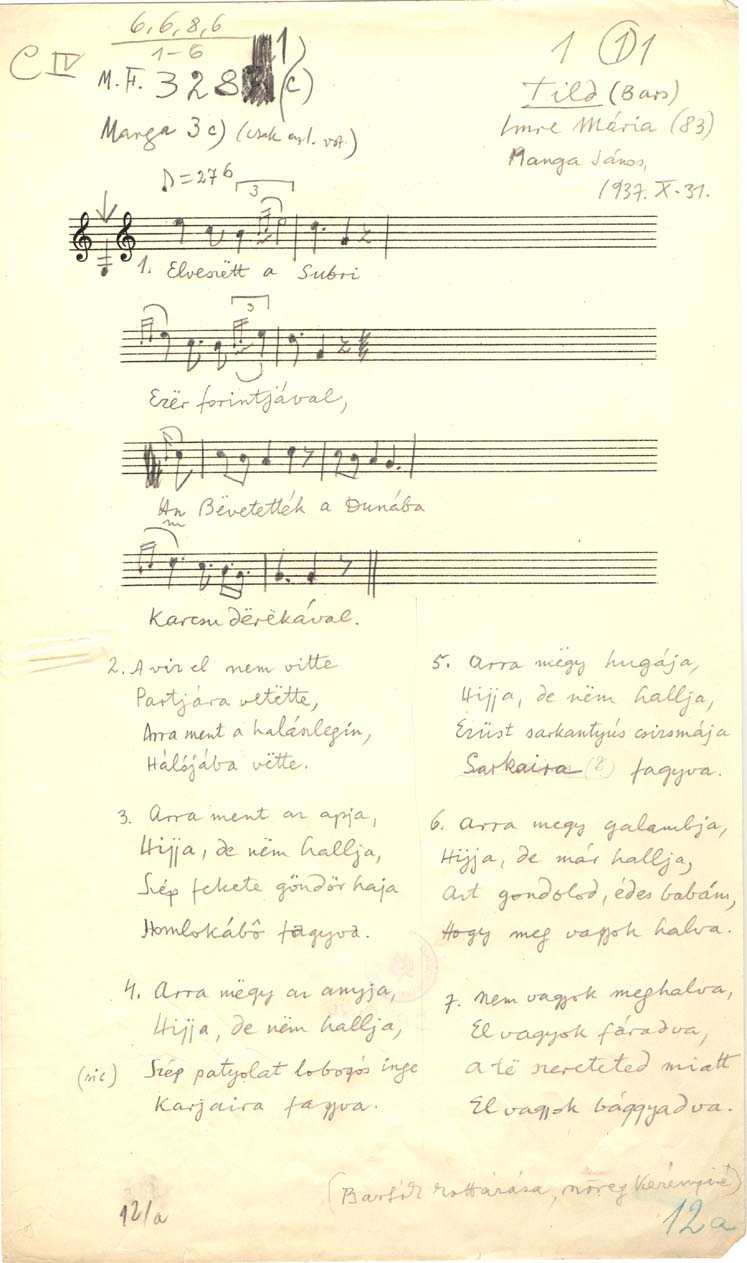 6, 6, 8, 6
1-6
C IV
M. F. 328 1) (c)
Manga 3c) (csak
1 ① 1
Tild (Bars)
Imre Mária (83)
Manga János,
1937. X. 31.
♪ = 276
3
1. Elveszëtt a Subri
3
Ezër forintjával,
An Bëvetették a Dunába
Karcsu dërëkával.
2. A viz el nem vitte
Partjára vetëtte,
Arra ment a halászlegín,
Hálójába vëtte.
3. Arra ment az apja,
Hijja, de nëm hallja,
Szép fekete göndör haja
Homlokábô fagyva.
4. Arra mëgy az anyja,
Hijja, de nëm hallja,
(sic) Szép patyolat lobogós inge
Karjaira fagyva.
5. Arra mëgy hugája,
Hijja, de nëm hallja,
Ezüst sarkantyús csizsmája
Sarkaira (?) fagyva.
6. Arra megy galambja,
Hijja, de már hallja,
Azt gondolod, édes babám,
Hogy meg vagyok halva.
7. Nem vagyok meghalva,
El vagyok fáradva,
A të szereteted miatt
El vagyok bággyadva.
(Bartók kottázása, szöveg Kerényiné)
12/a
12a